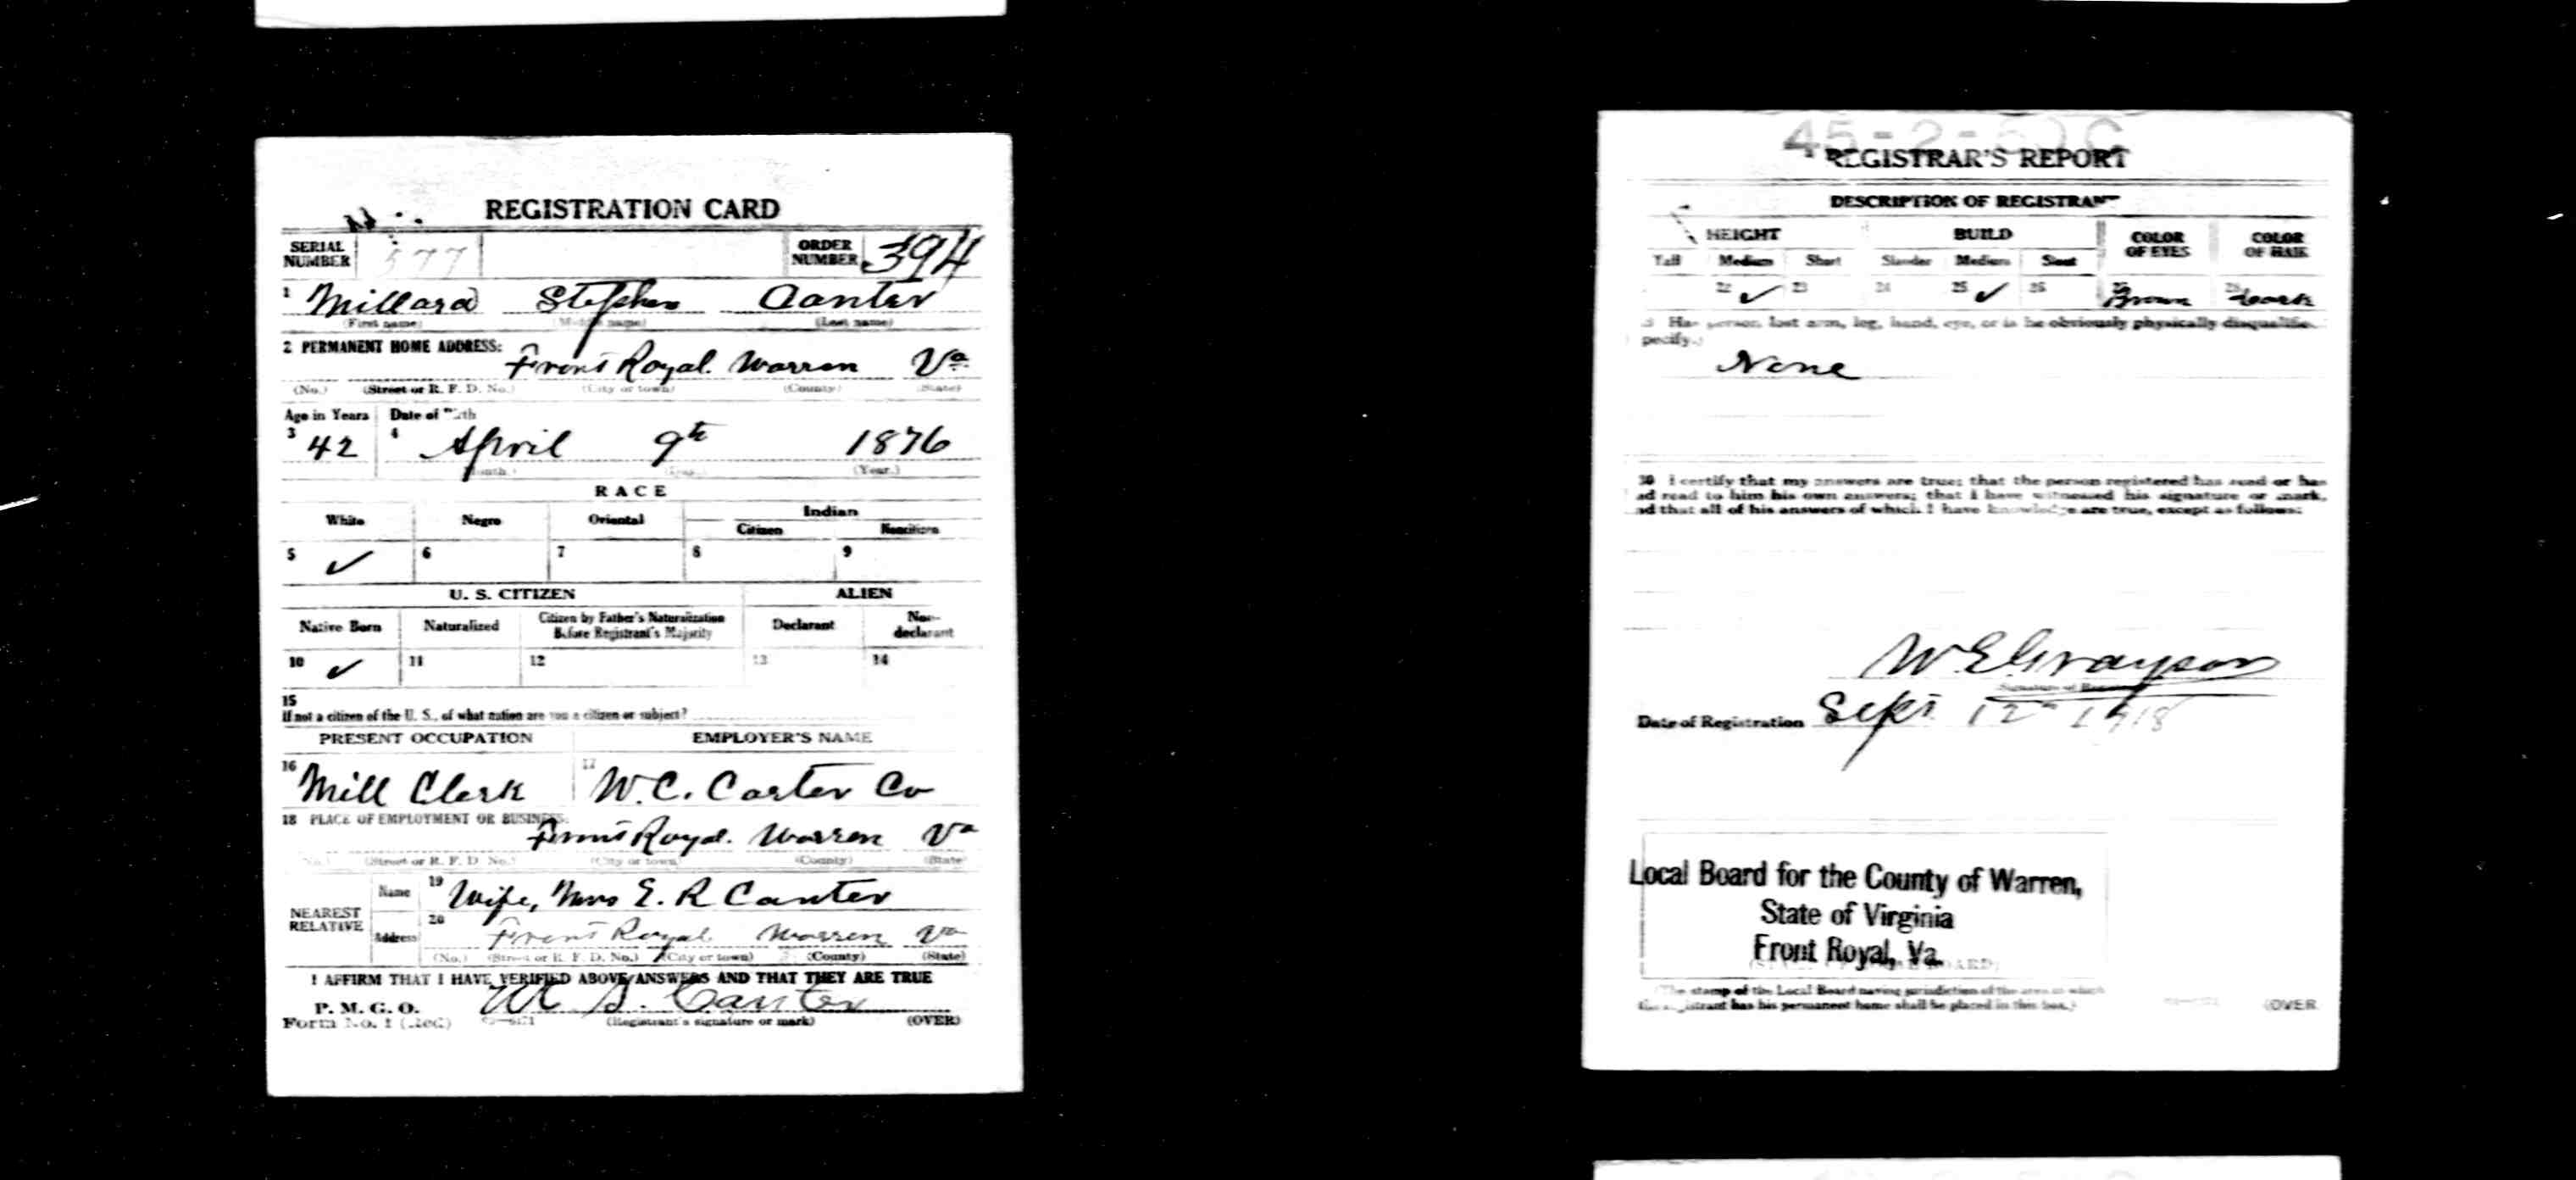 REGISTRATION CARD
SERIAL NUMBER 577 ORDER NUMBER 394
1 Millard Stephen Canter
(First name) (Middle name) (Last name)
2 PERMANENT HOME ADDRESS:
Front Royal. Warren Va
(No.) (Street or R. F. D. No.) (City or town) (County) (State)
Age in Years Date of Birth
3 42 4 April 9th 1876
(Month.) (Day.) (Year.)
RACE
White Negro Oriental Indian
Citizen Noncitizen
5 ✓ 6 7 8 9
U. S. CITIZEN ALIEN
Native Born Naturalized Citizen by Father's Naturalization Before Registrant's Majority Declarant Non-declarant
10 ✓ 11 12 13 14
15
If not a citizen of the U. S., of what nation are you a citizen or subject?
PRESENT OCCUPATION EMPLOYER'S NAME
16 Mill Clerk 17 W.C. Carter Co
18 PLACE OF EMPLOYMENT OR BUSINESS:
Front Royal. Warren Va
(No.) (Street or R. F. D. No.) (City or town) (County) (State)
NEAREST RELATIVE
Name 19 Wife, Mrs E. R Canter
Address 20 Front Royal Warren Va
(No.) (Street or R. F. D. No.) (City or town) (County) (State)
I AFFIRM THAT I HAVE VERIFIED ABOVE ANSWERS AND THAT THEY ARE TRUE
P. M. G. O.
Form No. 1 (Red) S. Canter
(Registrant's signature or mark) (OVER)
REGISTRAR'S REPORT
DESCRIPTION OF REGISTRANT
HEIGHT BUILD COLOR OF EYES COLOR OF HAIR
Tall Medium Short Slender Medium Stout
22 ✓ 23 24 25 ✓ 26 Brown Dark
Has person lost arm, leg, hand, eye, or is he obviously physically disqualified?
pecify.)
None
30 I certify that my answers are true; that the person registered has read or has
ad read to him his own answers; that I have witnessed his signature or mark,
nd that all of his answers of which I have knowledge are true, except as follows:
W E Grayson
(Signature of Registrar)
Date of Registration Sept 12th 1918
Local Board for the County of Warren,
State of Virginia
Front Royal, Va.
(The stamp of the Local Board having jurisdiction of the area in which
the registrant has his permanent home shall be placed in this box.)
(OVER